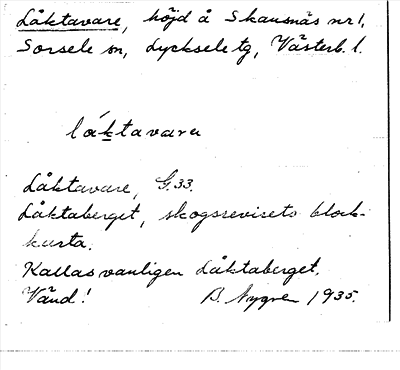 Låktavare, höjd å Skansnäs nr 1,
Sorsele sn, Lycksele tg, Västerb. l.
láktavarɛ
Låktavare, G.33.
Låktaberget, skogsrevisets block-
karta.
Kallas vanligen Låktaberget.
Vänd! B. Nygren 1935.